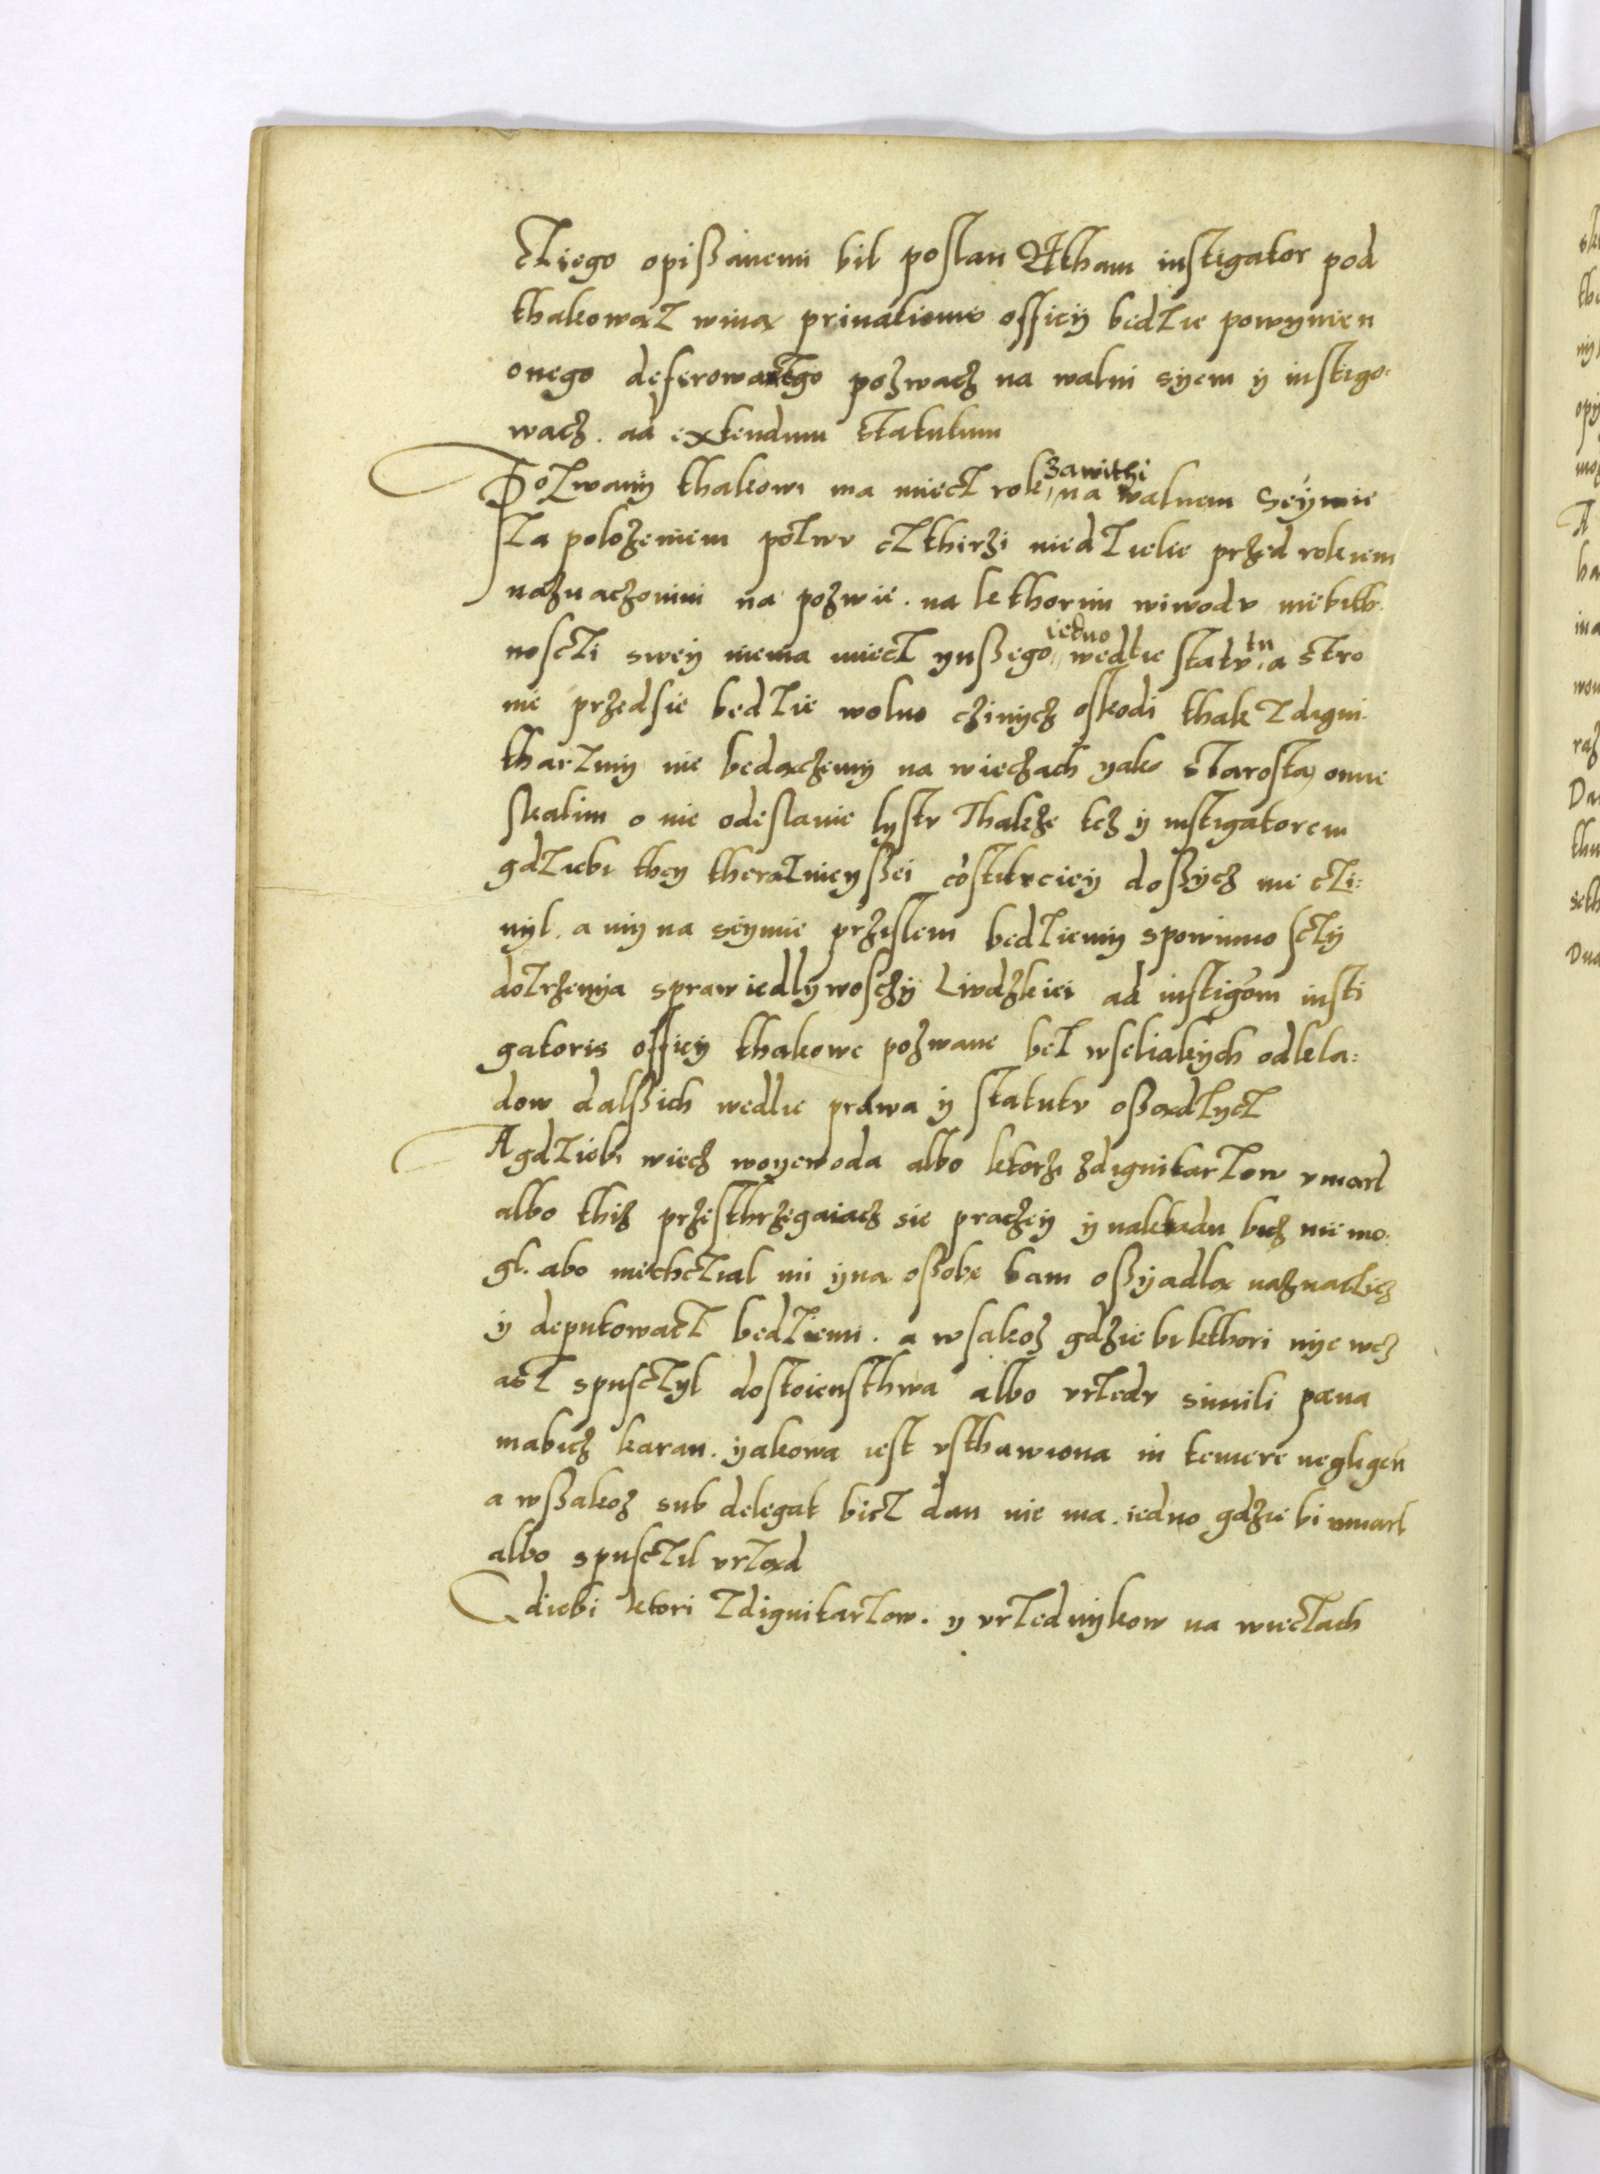 cziego opißanem bil poslan Atham instigator pod
thakowąz winą priuationis officÿ bedzie powynien
onego deferowanego pozwacz na walni syem ÿ instigo
wacz . ad extendum statutum
Pozwanÿ thakowi ma miecz rok zawithi na walnem Seÿmie
za polożeniem pozwu czthirzi niedzielie przed rokiem
naznaczonim na pozwie . na kthorim wiwodu niebith
nosczi sweÿ niema miecz ynßego iedno wedlie statutu a stro
nie przedsie bedzie wolno czinÿcz oskodi thak z digni
tharzmÿ nie bedączemÿ na wieczach yako starostą omie
skalim o nie odeslanie lystu Thakze tez ÿ instigatorem
gdziebi they theraznieyßei cōstituciey doßÿcz nie czi:
nÿl . a mÿ na seÿmie przislem bedziemÿ spowinno sczÿ
dozrzemya sprawiedlÿwosczÿ Liudzkiei ad instigōm insti
gatoris officÿ thakowe pozwane bez wseliakÿch odkla:
dow dalßich wedlie prawa ÿ statutu oßądzÿcz
A gdziebi wiecz woyewoda albo ktorzi zdignitarzow vmarl
albo thiz przesthrzegaiacz sie praczeÿ ÿ nakładu bicz nie mo:
gl. abo niechczial mi ÿną oßobe tam oßÿadlą naznaczicz
ÿ deputowacz bedziemi . a wsakoz gdzie bi kthori nÿe wcz
asz spusczÿl dostoiensthwa albo vrzedu simili pæna
mabicz karan . ÿakowa iest vsthawiona in temere negligen
a wßakoz sub delegat bicz dan nie ma . iedno gdzie bi vmarl
albo spusczil vrząd
Gdiebi ktori z dignitarzow . y vrzednÿkow na wieczach